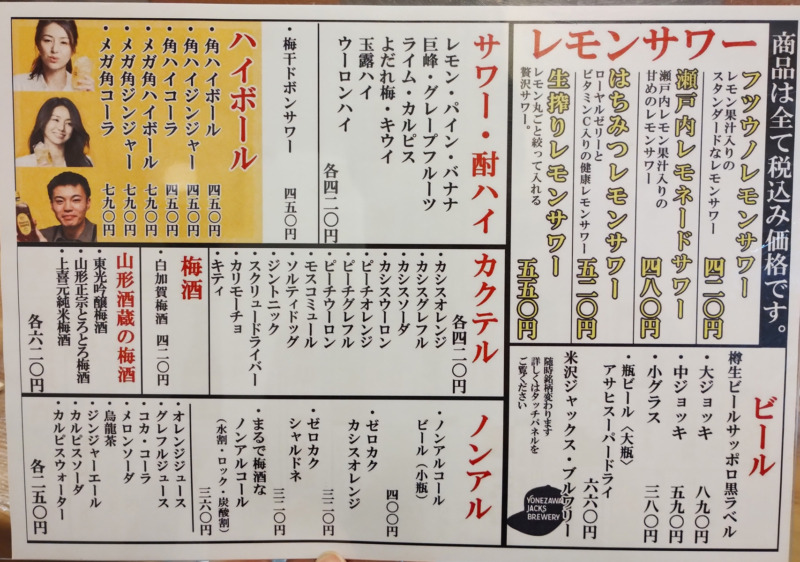 商品は全て税込み価格です。
レモンサワー
フツウノレモンサワー
レモン果汁入りの
スタンダードなレモンサワー
四二〇円
瀬戸内レモネードサワー
瀬戸内レモン果汁入りの
甘めのレモンサワー
四八〇円
はちみつレモンサワー
ローヤルゼリーと
ビタミンC入りの健康レモンサワー
五二〇円
生搾りレモンサワー
レモン丸ごと絞って入れる
贅沢サワー。
五五〇円
ビール
樽生ビールサッポロ黒ラベル
・大ジョッキ 八九〇円
・中ジョッキ 五九〇円
・小グラス 三八〇円
・瓶ビール〈大瓶〉
アサヒスーパードライ
六六〇円
米沢ジャックス・ブルワリー
随時銘柄変わります
詳しくはタッチパネルを
ご覧ください
YONEZAWA
JACKS
BREWERY
サワー・酎ハイ
レモン・パイン・バナナ
巨峰・グレープフルーツ
ライム・カルピス
よだれ梅・キウイ
玉露ハイ
ウーロンハイ
各四二〇円
・梅干ドボンサワー 四五〇円
ハイボール
・角ハイボール 四五〇円
・角ハイジンジャー 四五〇円
・角ハイコーラ 四五〇円
・メガ角ハイボール 七九〇円
・メガ角ジンジャー 七九〇円
・メガ角コーラ 七九〇円
カクテル
各四二〇円
・カシスオレンジ
・カシスグレフル
・カシスソーダ
・カシスウーロン
・ピーチオレンジ
・ピーチグレフル
・ピーチウーロン
・モスコミュール
・ソルティドッグ
・ジントニック
・スクリュードライバー
・カリモーチョ
・キティ
梅酒
・白加賀梅酒 四二〇円
山形酒蔵の梅酒
・東光吟醸梅酒
・山形正宗とろとろ梅酒
・上喜元純米梅酒
各六二〇円
ノンアル
・ノンアルコール
ビール〈小瓶〉
四〇〇円
・ゼロカク
カシスオレンジ
三二〇円
・ゼロカク
シャルドネ
三二〇円
・まるで梅酒な
ノンアルコール
（水割・ロック・炭酸割）
三六〇円
・オレンジジュース
・グレフルジュース
・コカ・コーラ
・メロンソーダ
・烏龍茶
・ジンジャーエール
・カルピスソーダ
・カルピスウォーター
各二五〇円